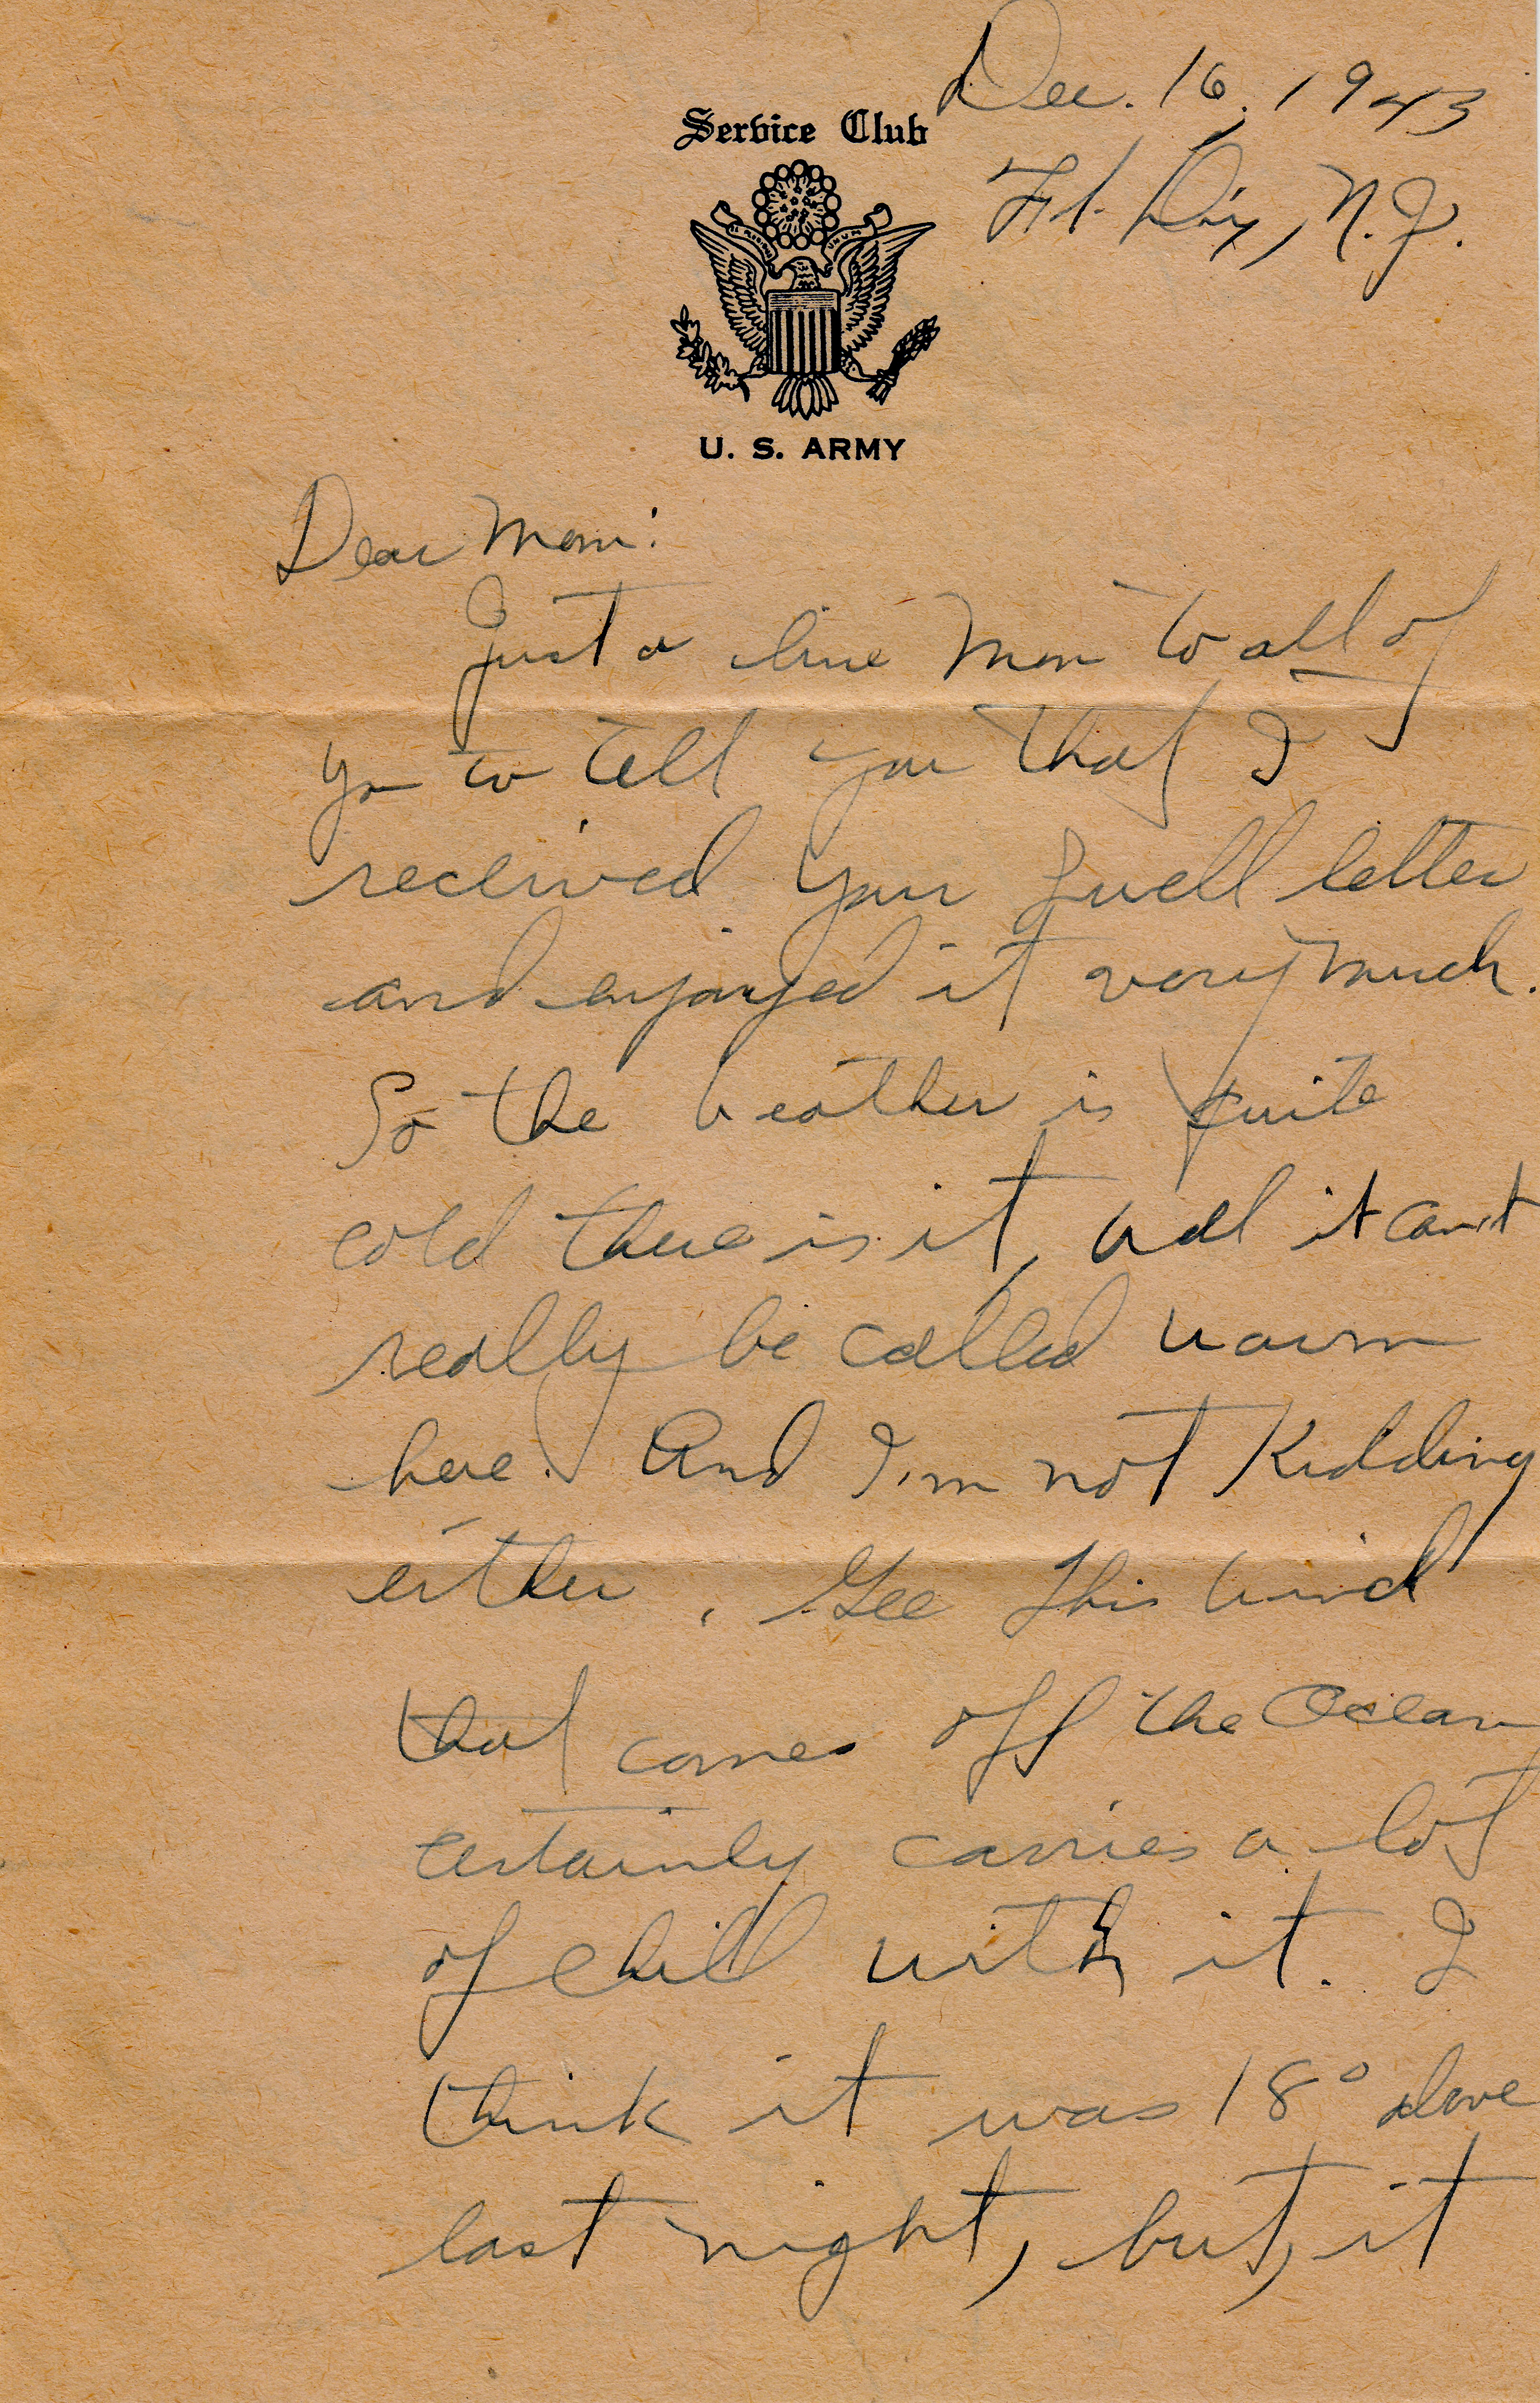 Dec. 16, 1943
Service Club
Ft. Dix, N.J.
E PLURIBUS UNUM
U. S. ARMY
Dear Mom:
Just a line Mom to all of
you to tell you that I
received your swell letter
and enjoyed it very much.
So the weather is quite
cold there is it, well it can't
really be called warm
here. And I'm not Kidding
either. Gee this wind
that comes off the Ocean
certainly carries a lot
of chill with it. I
think it was 18° above
last night, but, it